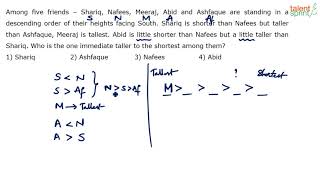 talent sprint
Among five friends – Shariq, Nafees, Meeraj, Abid and Ashfaque are standing in a
S N M A Af
descending order of their heights facing South. Shariq is shorter than Nafees but taller
than Ashfaque, Meeraj is tallest. Abid is little shorter than Nafees but a little taller than
Shariq. Who is the one immediate taller to the shortest among them?
1) Shariq 2) Ashfaque 3) Nafees 4) Abid
S < N
S > Af
N > S > Af
M → Tallest
A < N
A > S
Tallest ? Shortest
M > _ > _ > _ > _